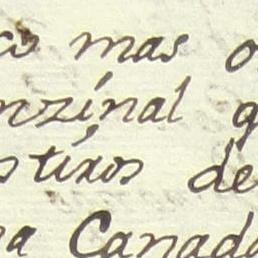 co mas o
nzinal q
stixos de
na Canada